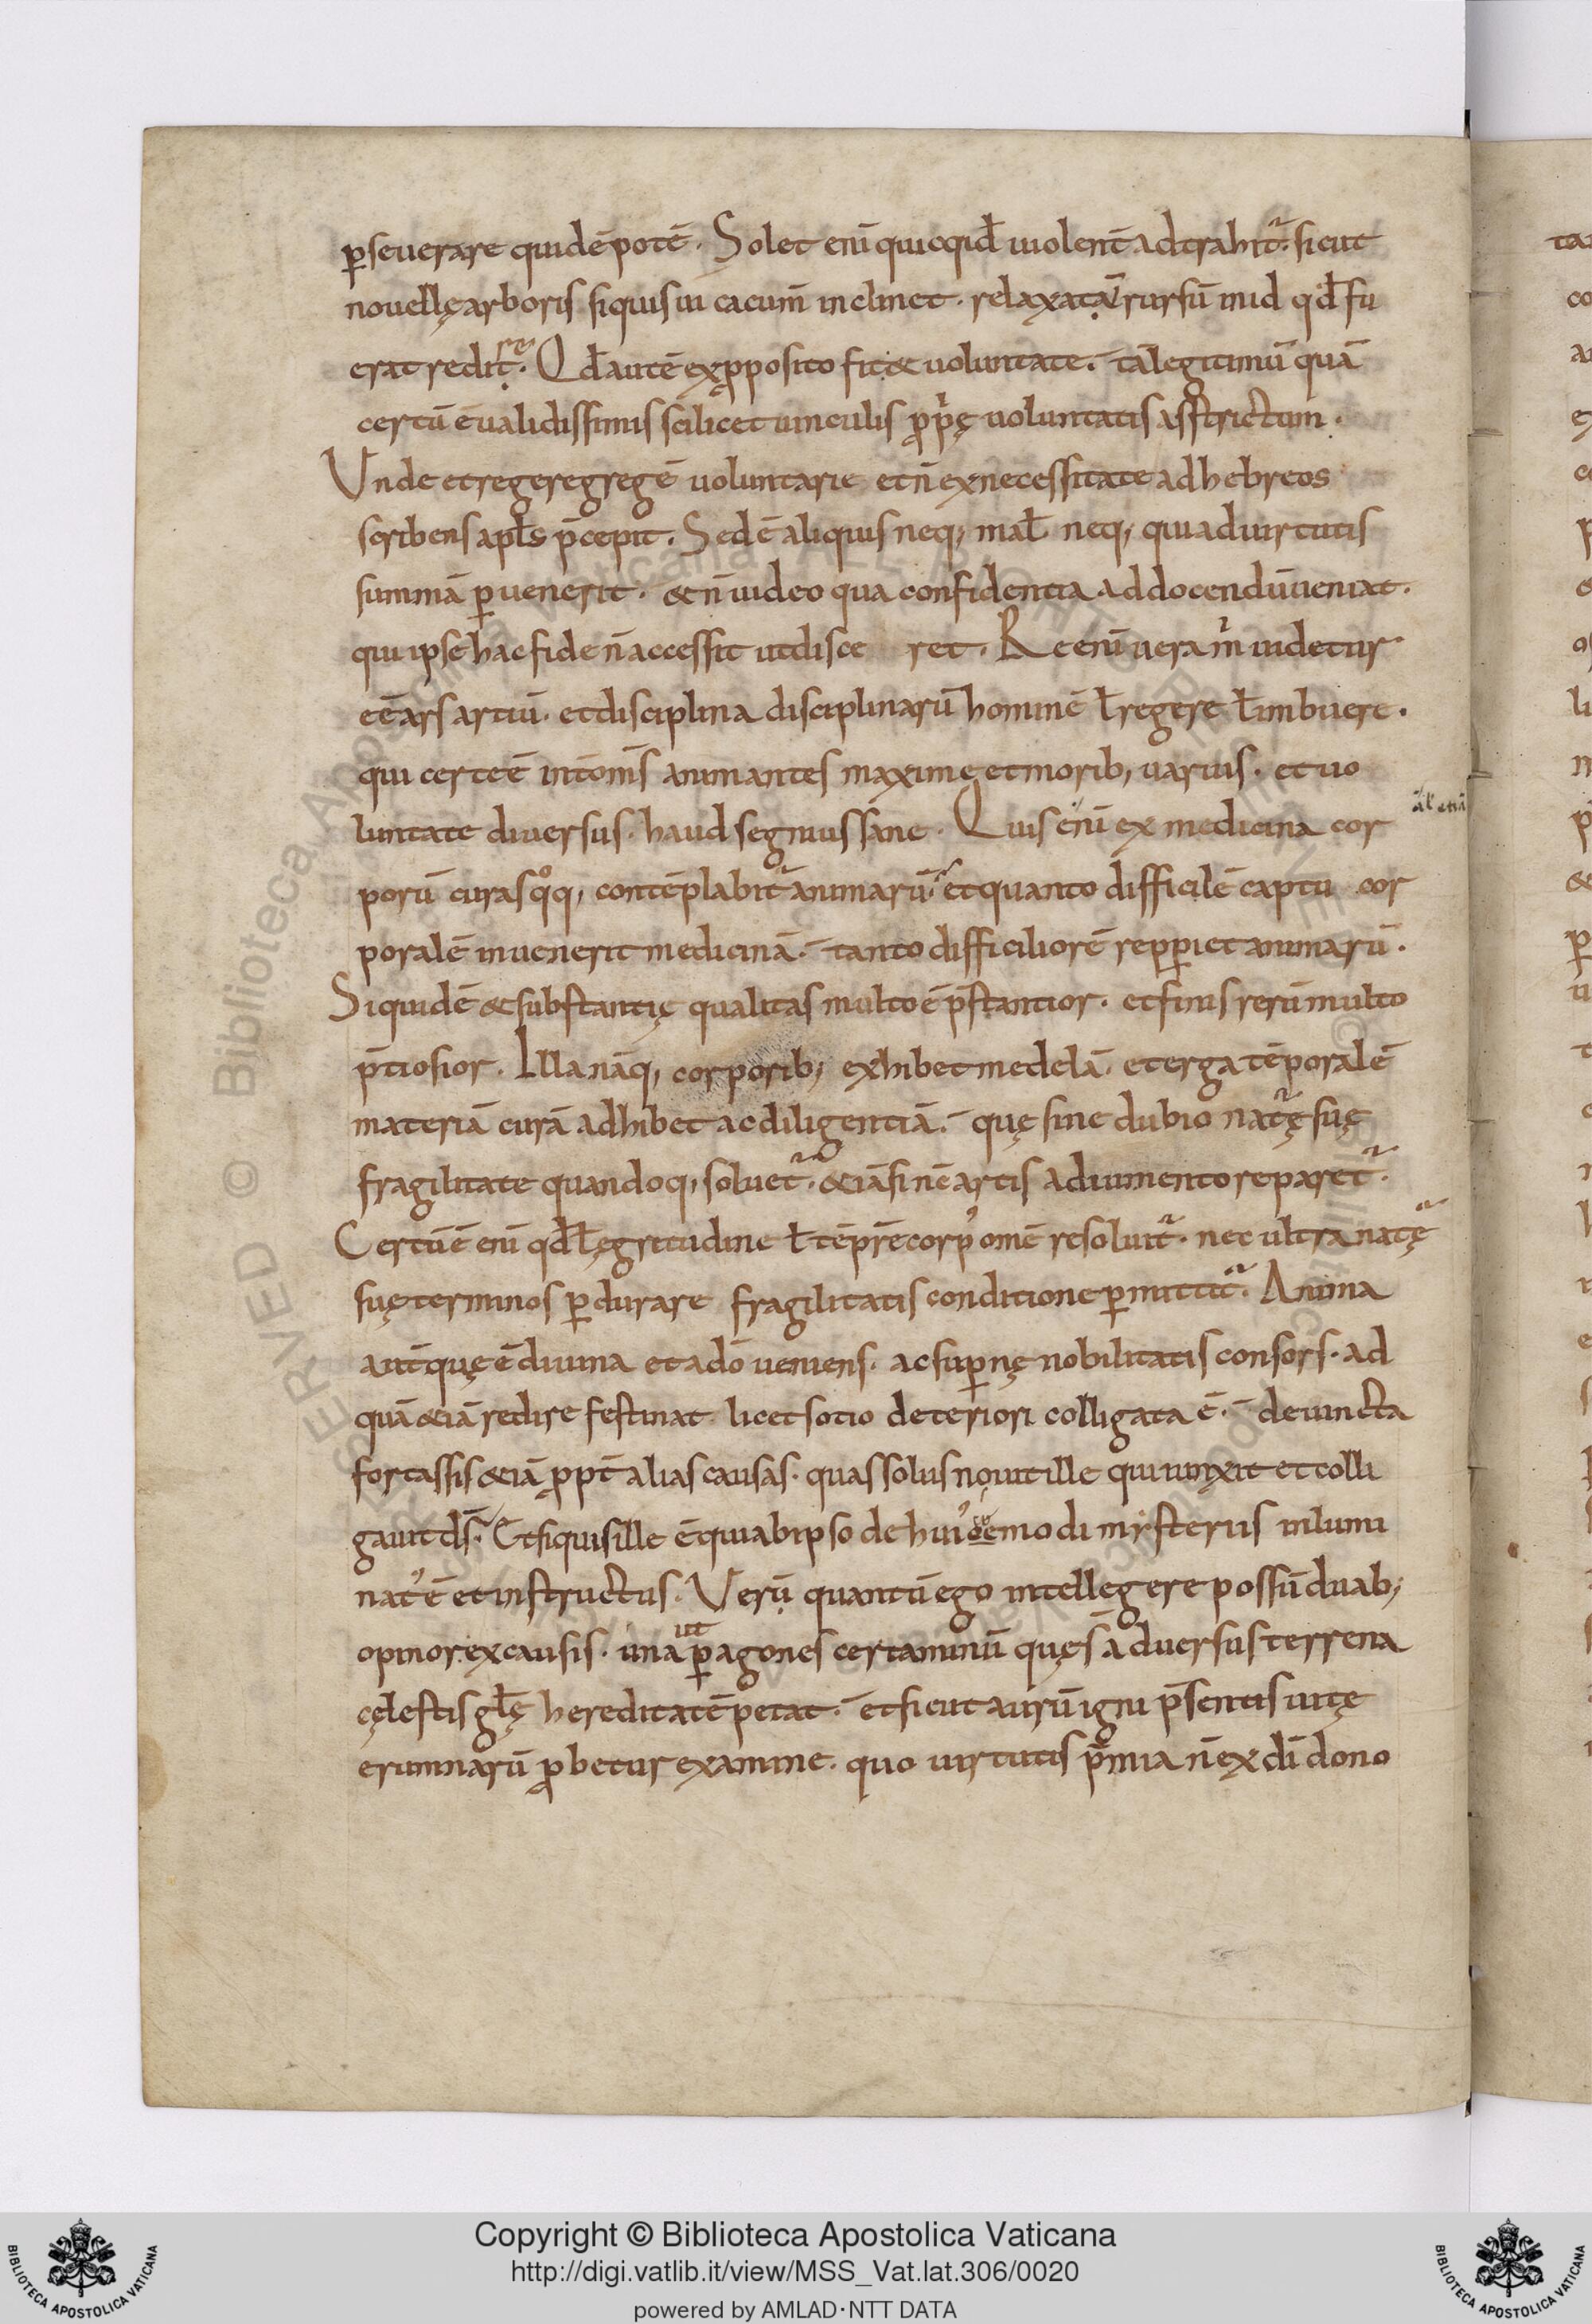 ꝑseuerare quidē potē. Solet enī quicqid̄ uiolent̄ adtrahit᷑. sicut
nouellę arboris siquis ui cacum̄ inclinet. relaxata rursū in id qd̄ fu
erat redit. Qd̄ autē ex ꝓposito fit & uoluntate. tā legitimū quā
certū ē ualidissimis scilicet uinculis ꝓpⁱę uoluntatis asstrictum.
Vnde et regere gregē uoluntarie et n̄ ex necessitate ad hebreos
scribens apl̄s p̄cepit. Sed ē aliquis neq; mal̄ neq; qui ad uirtutis
summā ꝑuenerit. & n̄ uideo qua confidentia ad docendū ueniat.
qui ipse hac fide n̄ accessit ut disce ret. Re enī uera mⁱ uidetur
eē ars artiū. et disciplina disciplinarū hominē ł regere ł imbuere.
qui certe ē int̄ om̄s animantes maxime et morib; uariis. et uo
luntate diuersus. haud segnius sane. Quis enī ex medicina cor
porū curas qͦq; contēplabit᷑ animarū. et quanto difficilē captu cor
poralē inuenerit medicinā. tanto difficiliorē repꝑiet animarū.
Siquidē & substantię qualitas multo ē p̄stantior. et finis rerū multo
p̄tiosior. Illa nāq; corporib; exhibet medelā. et erga tēporalē
materiā curā adhibet ac diligentiā. quę sine dubio nat᷑ę suę
fragilitate quandoq; soluet᷑. &iā si n̄ e artis adiumento reparet᷑.
Certū ē enī qd̄ ł ęgritudine ł tēpr̄e corpꝰ om̄e resoluit᷑. nec ultra nat᷑ę
suę terminos ꝑdurare fragilitatis conditione ꝑmittit᷑. Anima
aut̄ quę ē diuina et a dō ueniens. ac suꝑnę nobilitatis consors. ad
quā &iā redire festinat. licet sotio deteriori colligata ē. deuincta
fortassis &iā ꝓpt̄ alias causas. quas solus nouit ille qui iunxit et colli
gauit ds̄. Et siquis ille ē qui ab ipso de huiꝰcemodi mẏsteriis inlumi
natꝰ ē et instructus. Verū quantū ego intellegere possū duab;
opinor ex causis. una ut ꝑ agones certaminū quę s̄ aduersus terrena
cęlestis gl̄ę hereditatē petat. et sicut aurū igni p̄sentis uitę
erumnarū ꝓbetur examine. quo uirtutis p̄mia n̄ ex dī dono
Copyright © Biblioteca Apostolica Vaticana
http://digi.vatlib.it/view/MSS_Vat.lat.306/0020
powered by AMLAD·NTT DATA
BIBLIOTECA APOSTOLICA VATICANA
BIBLIOTECA APOSTOLICA VATICANA